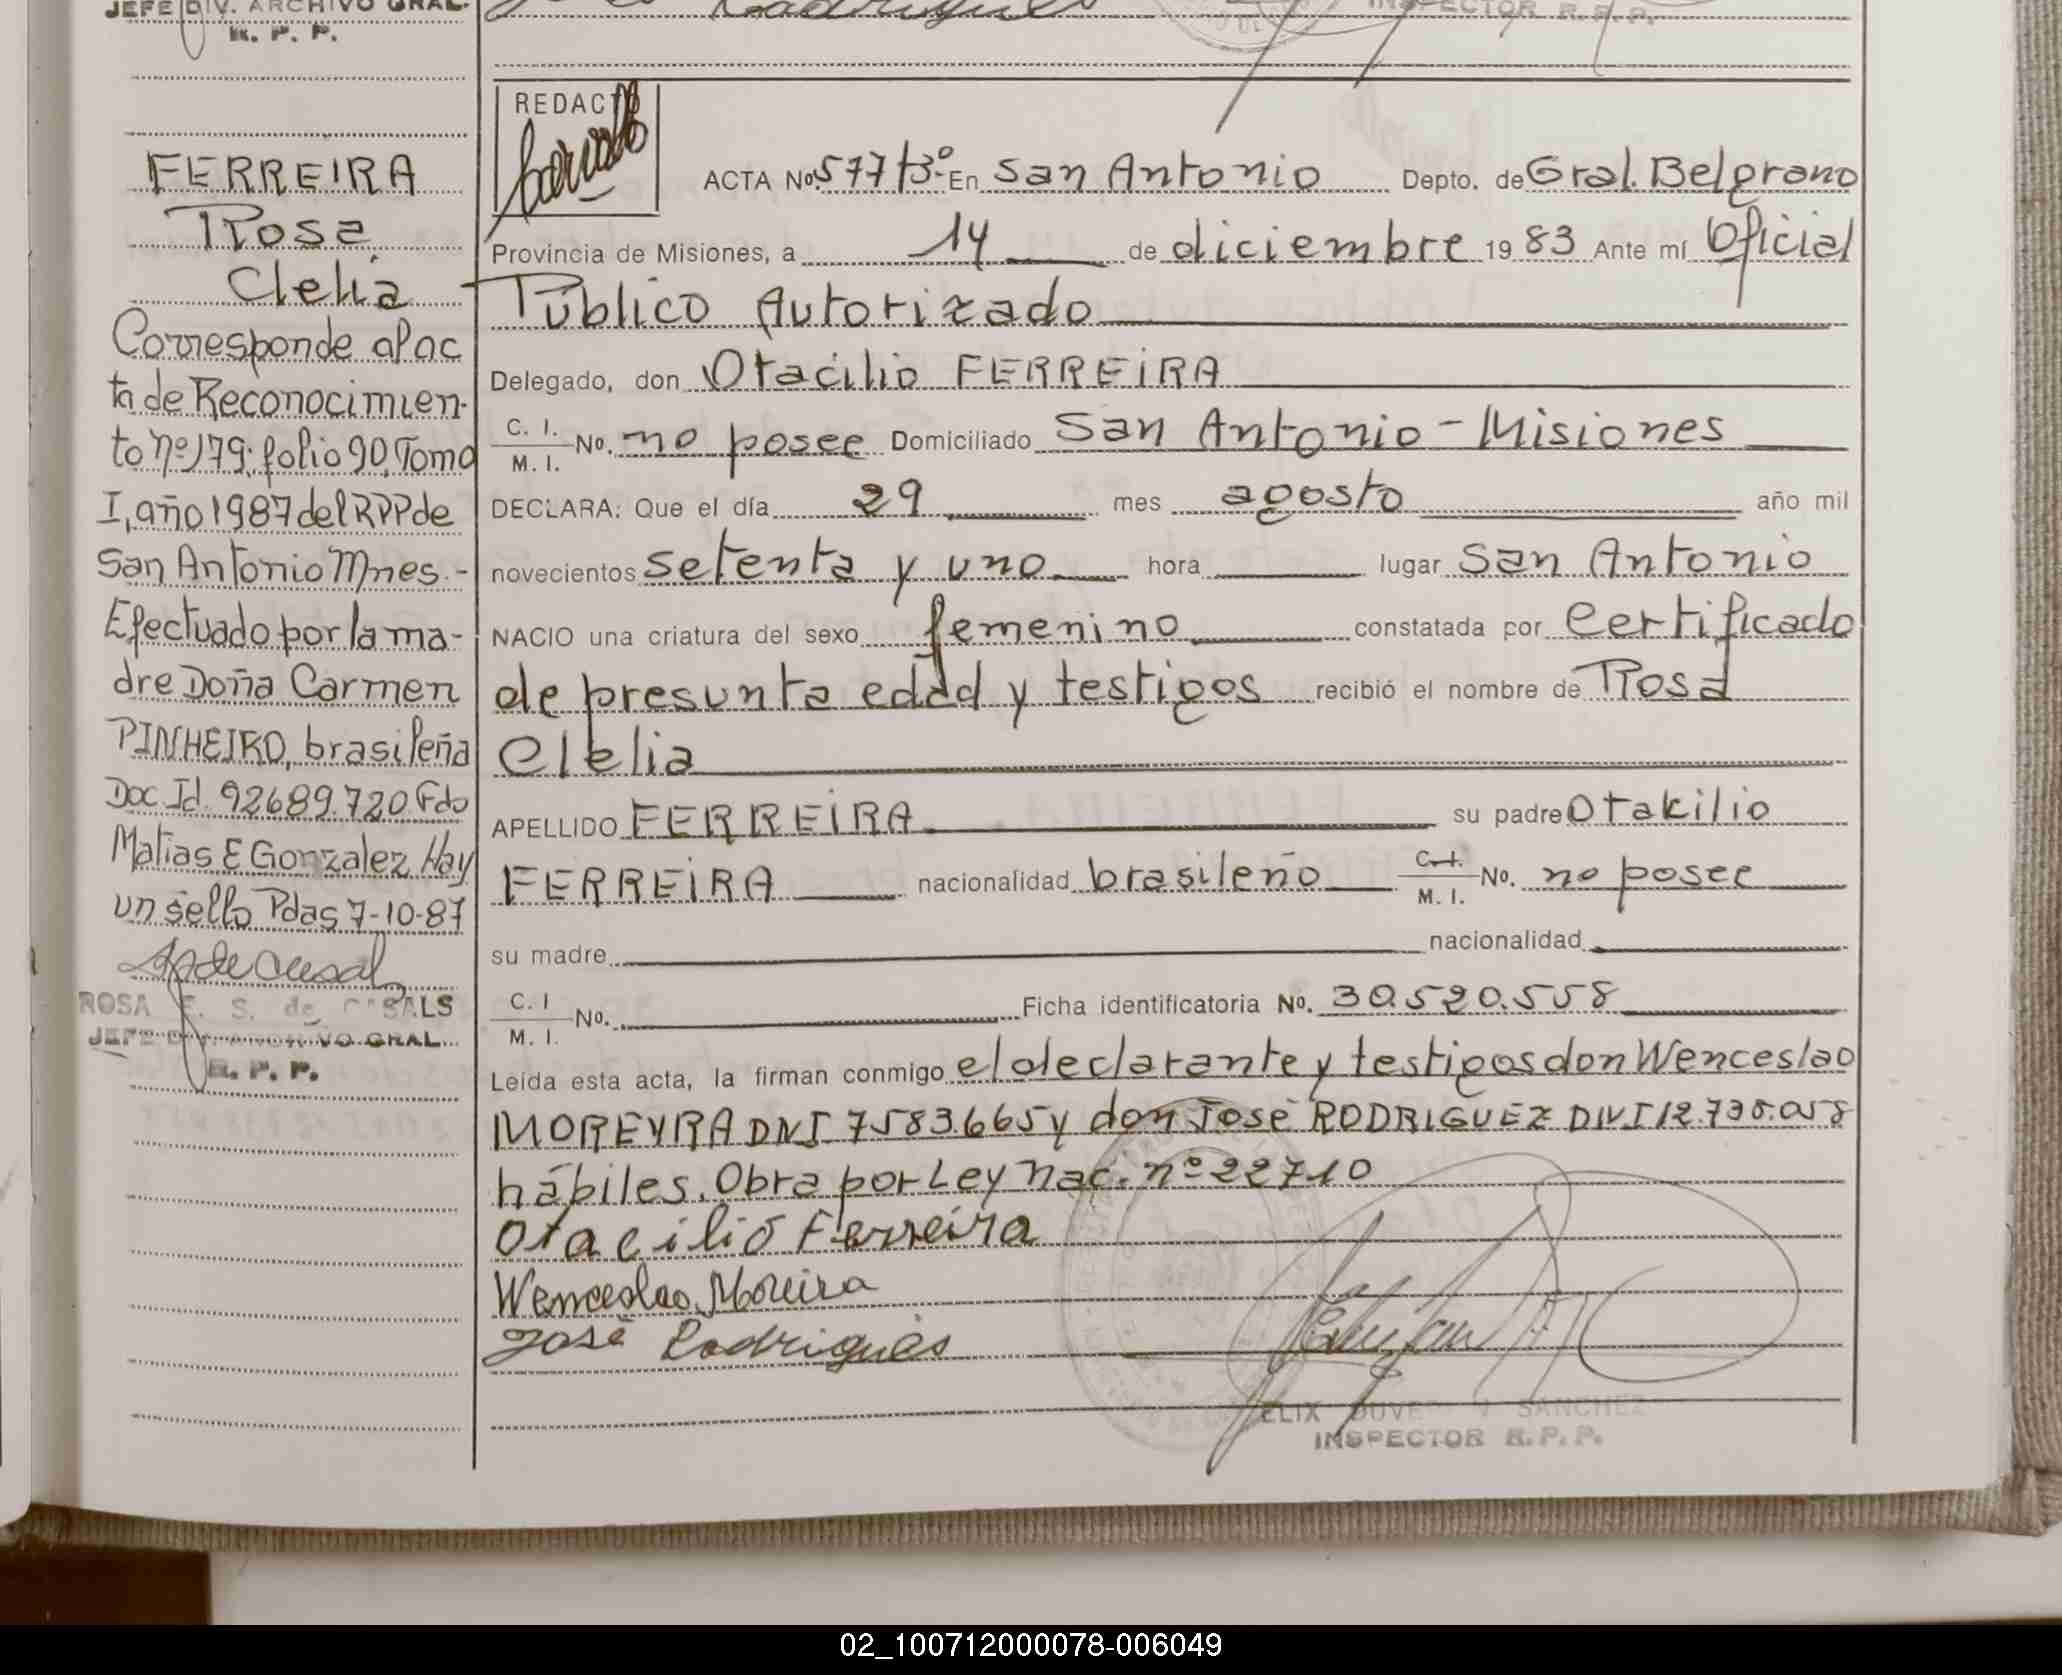 JEFE DIV. ARCHIVO GRAL.
R. P. P.
Rodrigues
INSPECTOR R. P. P.
FERREIRA
Rosa
Clelia
Corresponde al ac
ta de Reconocimien-
to nº 179. folio 90, Tomo
I, año 1987 del RPP de
San Antonio Mnes.-
Efectuado por la ma-
dre Doña Carmen
PINHEIRO, brasileña
Doc. Id. 92689.720 Fdo
Matias E Gonzalez Hay
un sello Pdas 7-10-87
ROSA E. S. de CASALS
JEFE DIV. ARCHIVO GRAL.
R. P. P.
REDACTÓ
ACTA No. 577 t3º- En San Antonio Depto. de Gral. Belgrano
Provincia de Misiones, a 14 de diciembre 19 83 Ante mí Oficial
Público Autorizado
Delegado, don Otacilio FERREIRA
C. I.
M. I. No. no posee Domiciliado San Antonio - Misiones
DECLARA: Que el día 29 mes agosto año mil
novecientos setenta y uno hora lugar San Antonio
NACIO una criatura del sexo femenino constatada por certificado
de presunta edad y testigos recibió el nombre de Rosa
Clelia
APELLIDO FERREIRA su padre Otakilio
FERREIRA nacionalidad brasileño C. I.
M. I. No. no posee
su madre nacionalidad
C. I
M. I. No. Ficha identificatoria No. 30.520.558
Leída esta acta, la firman conmigo el declarante y testigos don Wenceslao
MOREYRA DNI 7583.665 y don José RODRIGUEZ DNI 12.738.058
hábiles. Obra por Ley nac. nº 22710
Otacilio Ferreira
Wenceslao Moreira
José Rodrigues
FELIX DUVER V SANCHEZ
INSPECTOR R. P. P.
02_100712000078-006049